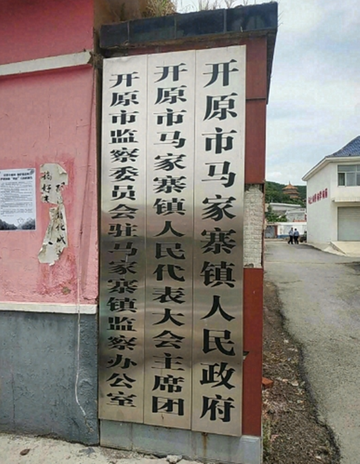 开原市马家寨镇人民政府
开原市马家寨镇人民代表大会主席团
开原市监察委员会驻马家寨镇监察办公室